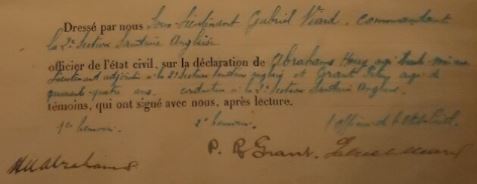 Dressé par nous Sous-Lieutenant Gabriel Viard, commandant
la 2e Section Sanitaire Anglaise
officier de l'état civil, sur la déclaration de Abrahams Henry agé
Lieutenant adjoint à la 2e Section sanitaire anglaise et Grant agé de
quarante-quatre ans conducteur à la 2e Section Sanitaire Anglaise
témoins, qui ont signé avec nous, après lecture.
1er témoin. 2e témoin. l'officier de l'état Civil.
HMAbrahams P. R Grant.